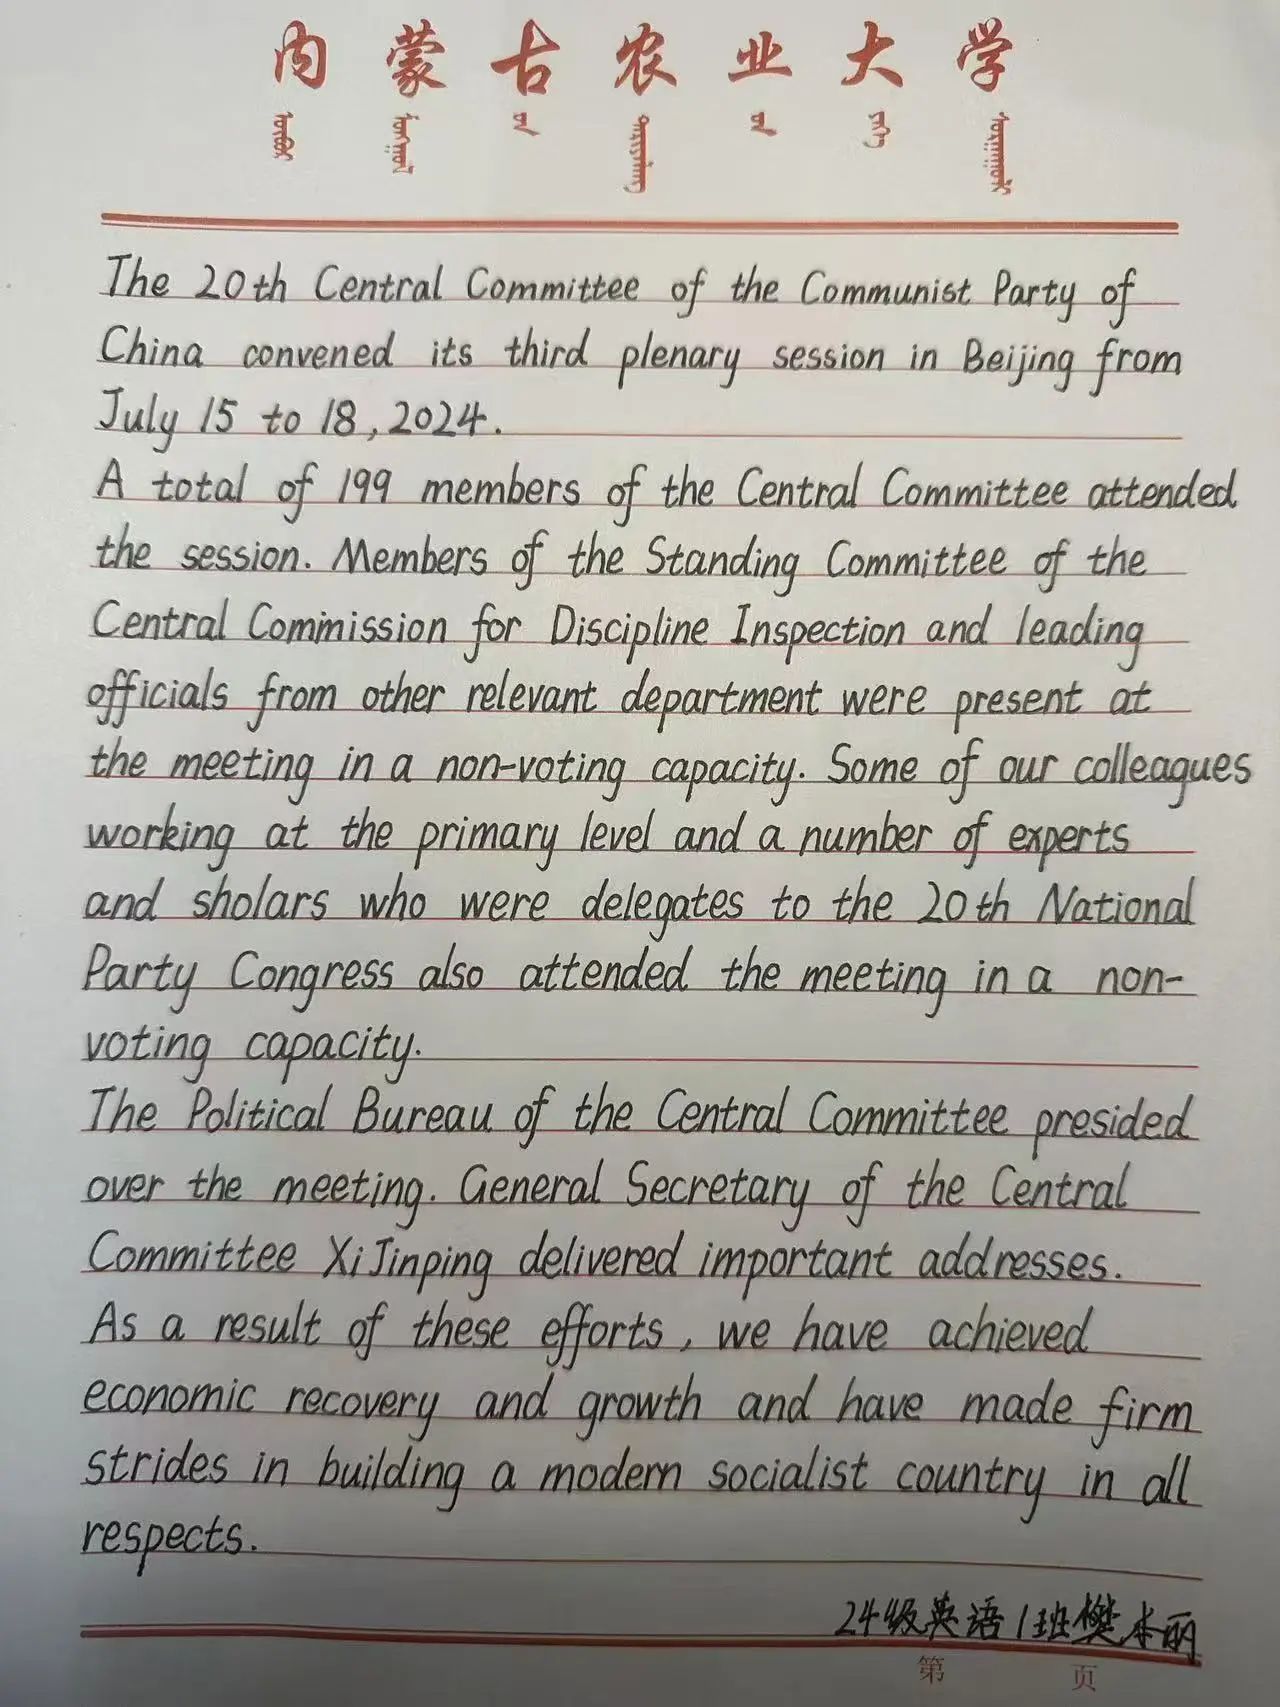 内蒙古农业大学
The 20th Central Committee of the Communist Party of
China convened its third plenary session in Beijing from
July 15 to 18, 2024.
A total of 199 members of the Central Committee attended
the session. Members of the Standing Committee of the
Central Commission for Discipline Inspection and leading
officials from other relevant department were present at
the meeting in a non-voting capacity. Some of our colleagues
working at the primary level and a number of experts
and sholars who were delegates to the 20th National
Party Congress also attended the meeting in a non-
voting capacity.
The Political Bureau of the Central Committee presided
over the meeting. General Secretary of the Central
Committee Xi Jinping delivered important addresses.
As a result of these efforts, we have achieved
economic recovery and growth and have made firm
strides in building a modern socialist country in all
respects.
24级英语1班樊本丽
第 页